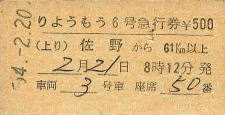 りようもう6号急行券¥500
(上り) 佐野から 61㎞以上
2月21日 8時12分発
車両 3号車 座席 50番
54.-2.20